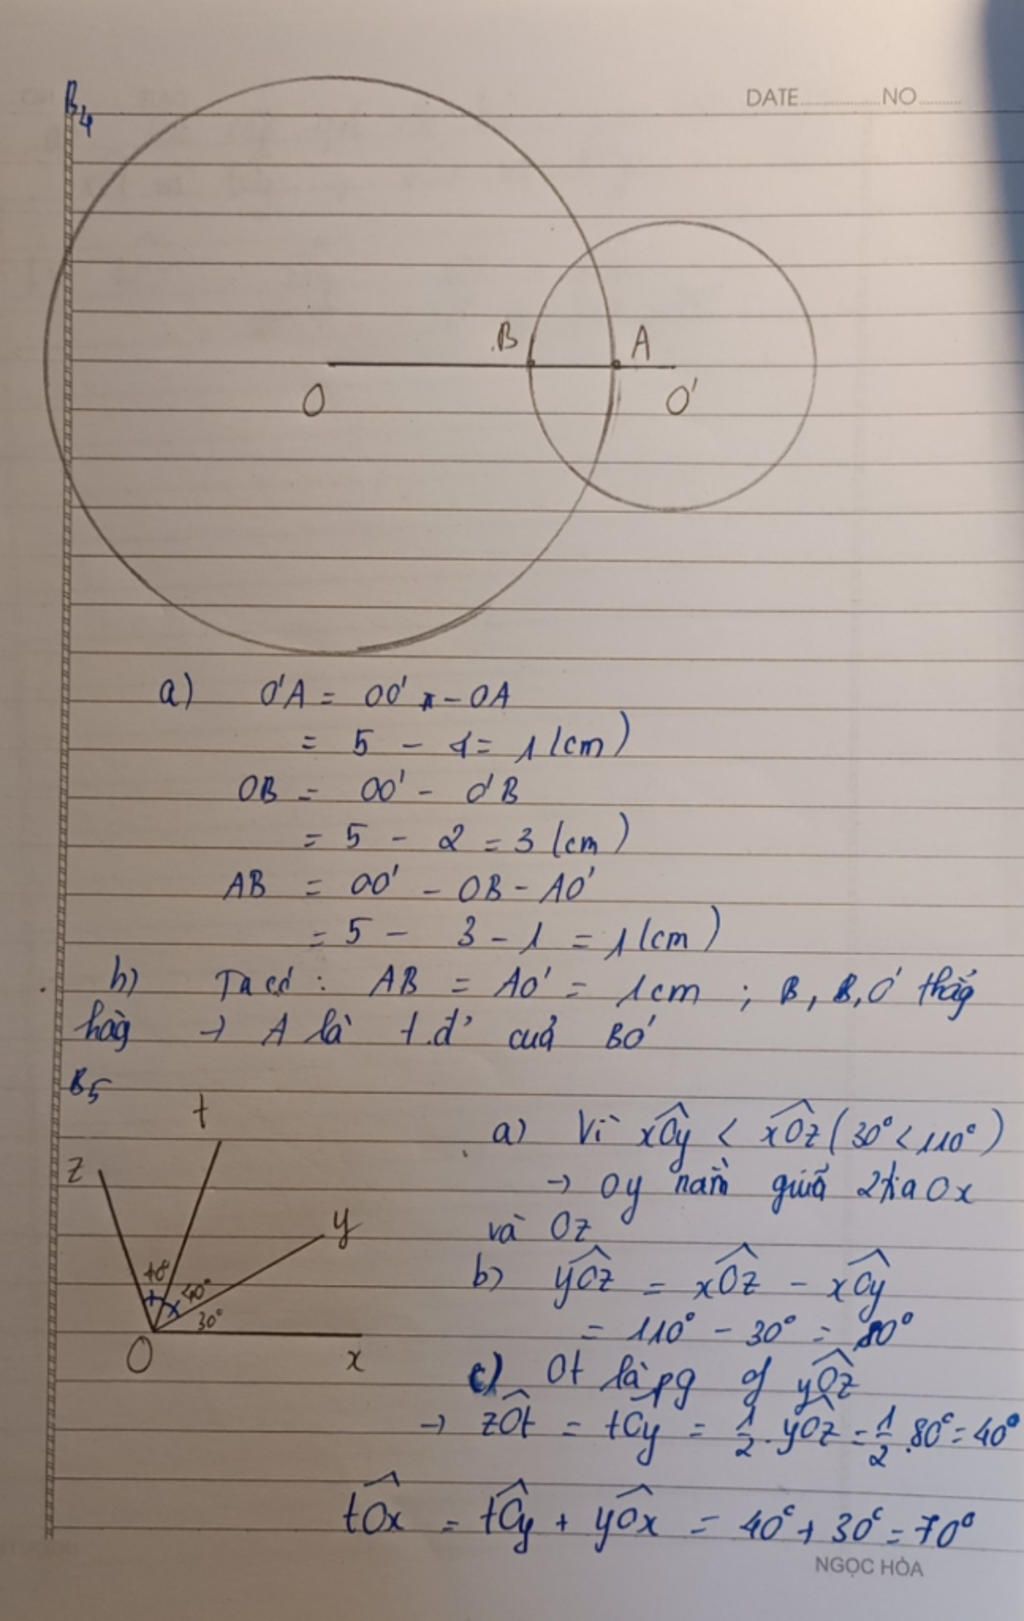 DATE NO
B4
B A
O O'
a) O'A = OO' - OA
= 5 - 4 = 1 (cm)
OB = OO' - O'B
= 5 - 2 = 3 (cm)
AB = OO' - OB - AO'
= 5 - 3 - 1 = 1 (cm)
b) Ta có : AB = AO' = 1cm ; B, A, O' thẳg
hàg → A là t.đ' của BO'
B5
t
z
y
40° 40° 30°
O x
a) Vì xOy < xOz (30° < 110°)
→ Oy nằm giữa 2 tia Ox
và Oz
b) yOz = xOz - xOy
= 110° - 30° = 80°
c) Ot là pg of yOz
→ zOt = tOy = 1/2 . yOz = 1/2 . 80° = 40°
tOx = tOy + yOx = 40° + 30° = 70°
NGỌC HÒA